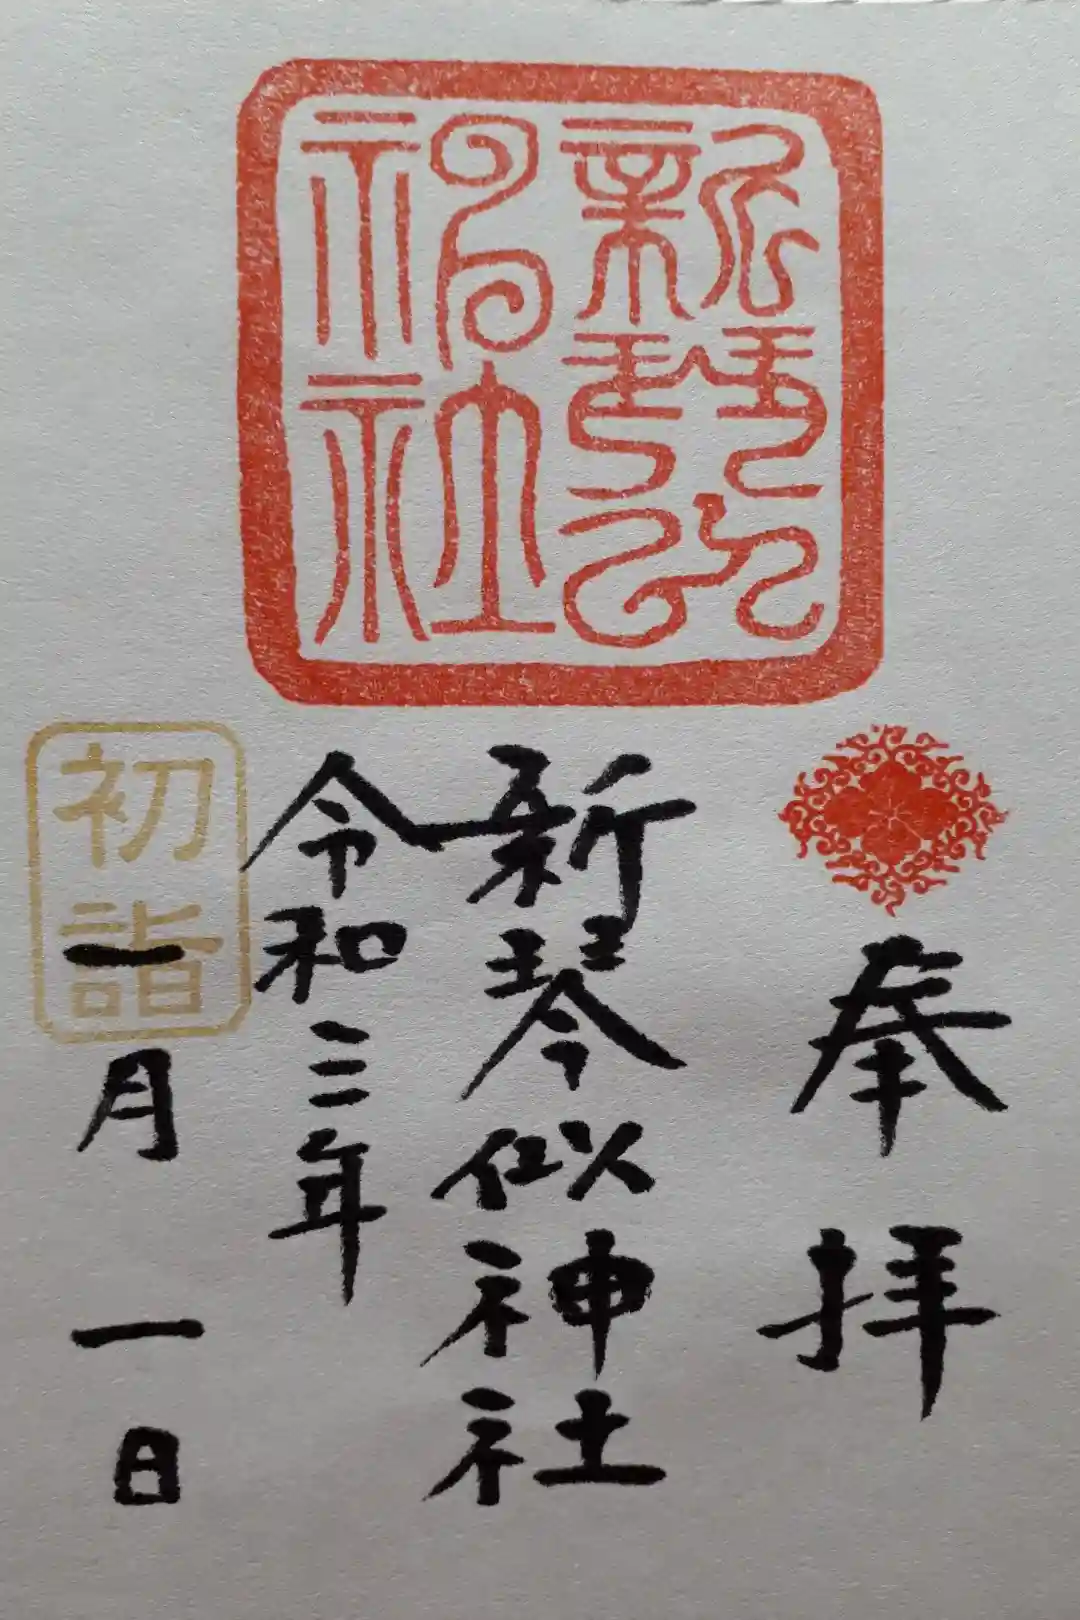 新琴似
神社
奉拝
新琴似神社
令和三年
一月一日
初詣